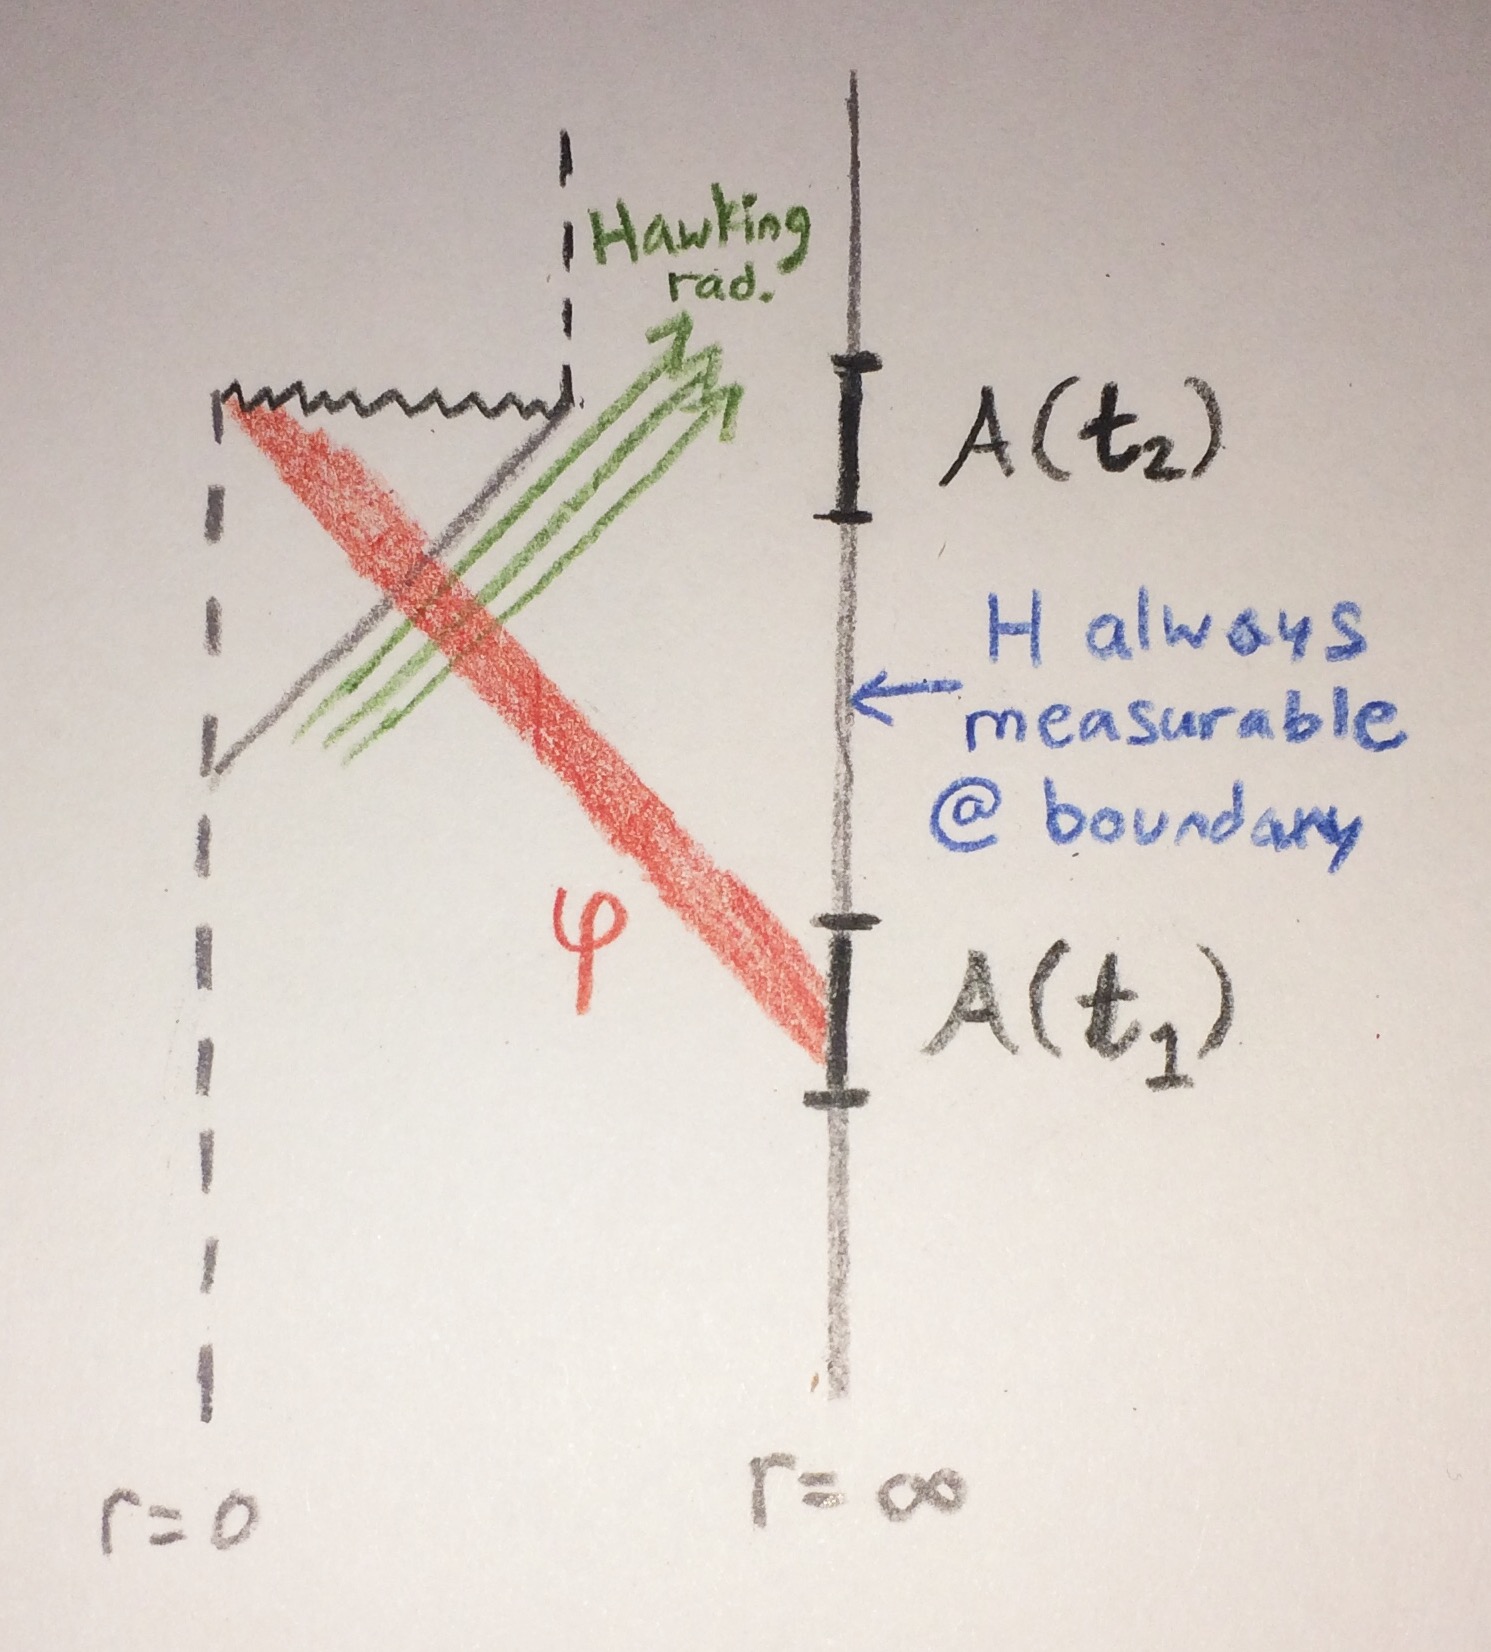 Hawking
rad.
A(t₂)
H always
measurable
@ boundary
φ
A(t₁)
r=0
r=∞